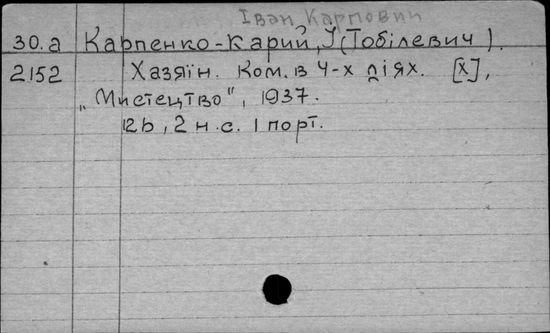 Іван Карпович
30.а Карпенко-Карий, І (Тобілевич).
2152 Хазяїн. Ком. в 4-х діях. [Х],
„Мистецтво", 1937.
12b, 2 н.с. 1 порт.